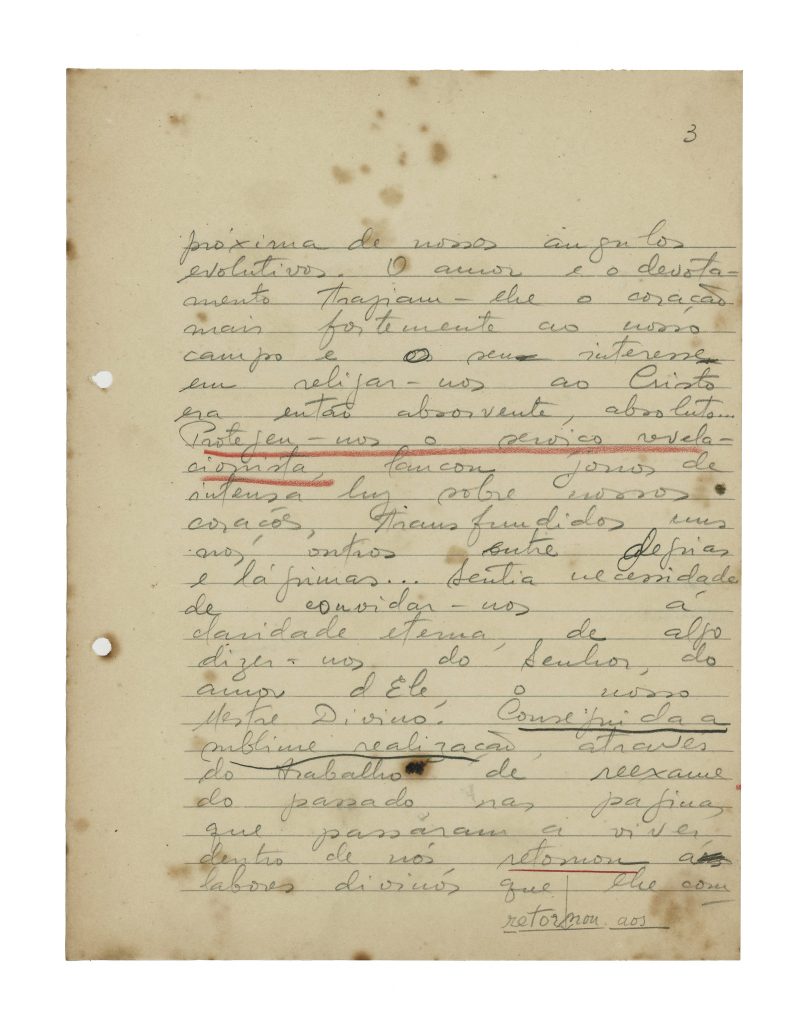 3
próxima de nossos ângulos
evolutivos. O amor e o devota-
mento traziam-lhe o coração
mais fortemente ao nosso
campo e o seu interesse
em religar-nos ao Cristo
era então absorvente, absoluto...
Protegeu-nos o serviço revela-
cionista, lançou jorros de
intensa luz sobre nossos
corações, transfundidos uns
nos outros entre alegrias
e lágrimas... Sentia necessidade
de convidar-nos á
claridade eterna, de algo
dizer-nos do Senhor, do
amor d'Ele, o nosso
Mestre Divino. Conseguida a
sublime realização, através
do trabalho de reexame
do passado nas paginas
que passáram a viver
dentro de nós retomou
labores divinos que lhe com
retornou aos